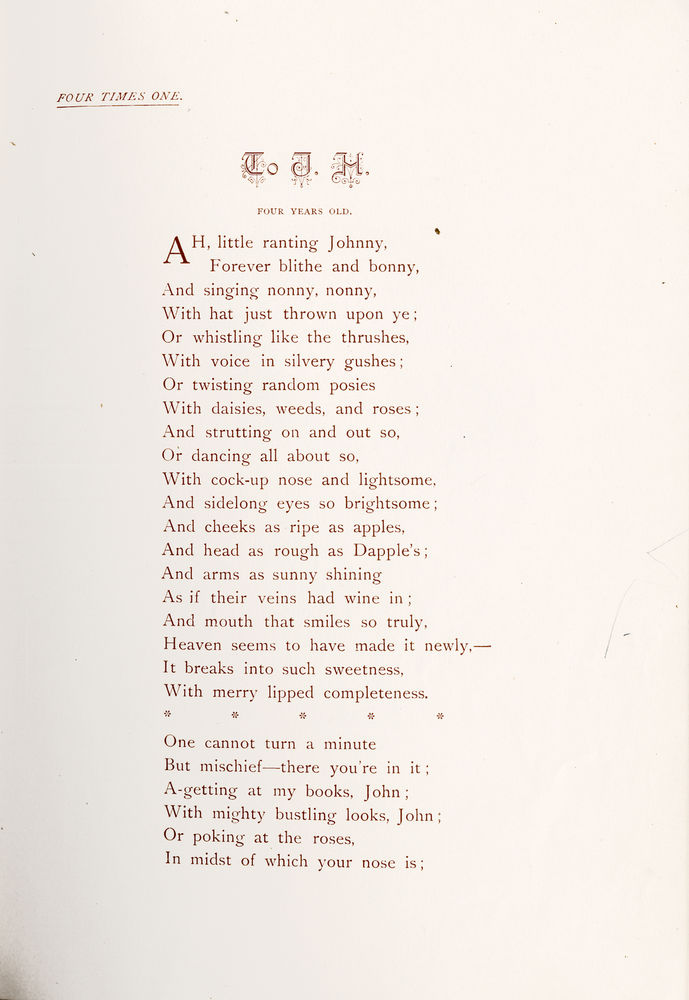 FOUR TIMES ONE.
To J. H.
FOUR YEARS OLD.
AH, little ranting Johnny,
Forever blithe and bonny,
And singing nonny, nonny,
With hat just thrown upon ye;
Or whistling like the thrushes,
With voice in silvery gushes;
Or twisting random posies
With daisies, weeds, and roses;
And strutting on and out so,
Or dancing all about so,
With cock-up nose and lightsome,
And sidelong eyes so brightsome;
And cheeks as ripe as apples,
And head as rough as Dapple's;
And arms as sunny shining
As if their veins had wine in;
And mouth that smiles so truly,
Heaven seems to have made it newly,—
It breaks into such sweetness,
With merry lipped completeness.
* * * * *
One cannot turn a minute
But mischief—there you're in it;
A-getting at my books, John;
With mighty bustling looks, John;
Or poking at the roses,
In midst of which your nose is;